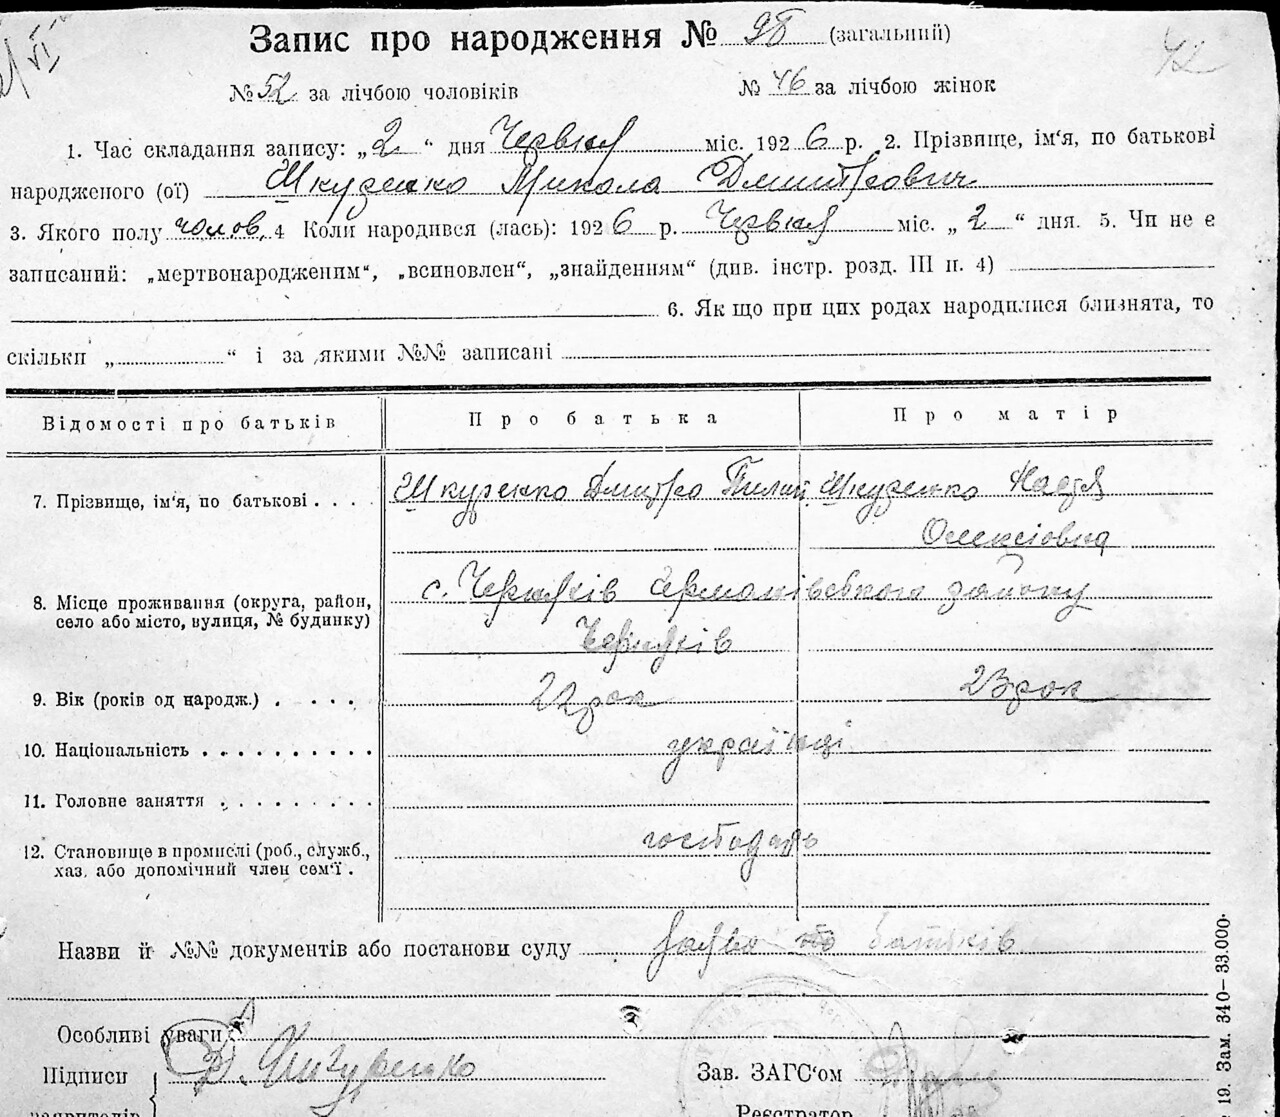 VI
Запис про народження № 98 (загальний)
42
№ 52 за лічбою чоловіків № 46 за лічбою жінок
1. Час складання запису: „2“ дня Червня міс. 1926 р. 2. Прізвище, ім‘я, по батькові
народженого (ої) Шкуренко Микола Дмитрович
3. Якого полу чолов. 4 Коли народився (лась): 1926 р. Червня міс. „2“ дня. 5. Чи не є
записаний: „мертвонародженим“, „всиновлен“, „знайденням“ (див. інстр. розд. III п. 4)
6. Як що при цих родах народилися близнята, то
скільки „ “ і за якими №№ записані
Відомості про батьків Про батька Про матір
7. Прізвище, ім‘я, по батькові . . . Шкуренко Дмитро Пилип Шкуренко Настя
Олексіовна
8. Місце проживання (округа, район, с. Черняхів Германівського району
село або місто, вулиця, № будинку)
Черняхів
9. Вік (років од народж.) . . . . . 22 рок 23 рок
10. Національність . . . . . . . . . . українці
11. Головне заняття . . . . . . . . .
12. Становище в промислі (роб., служб., господарь
хаз. або допомічний член сем‘ї .
Назви й №№ документів або постанови суду заява батьків
Особливі уваги
Підписи Д. Шкуренко Зав. ЗАГС‘ом
заявителів Реєстратор
19. Зам. 340– 33.000.